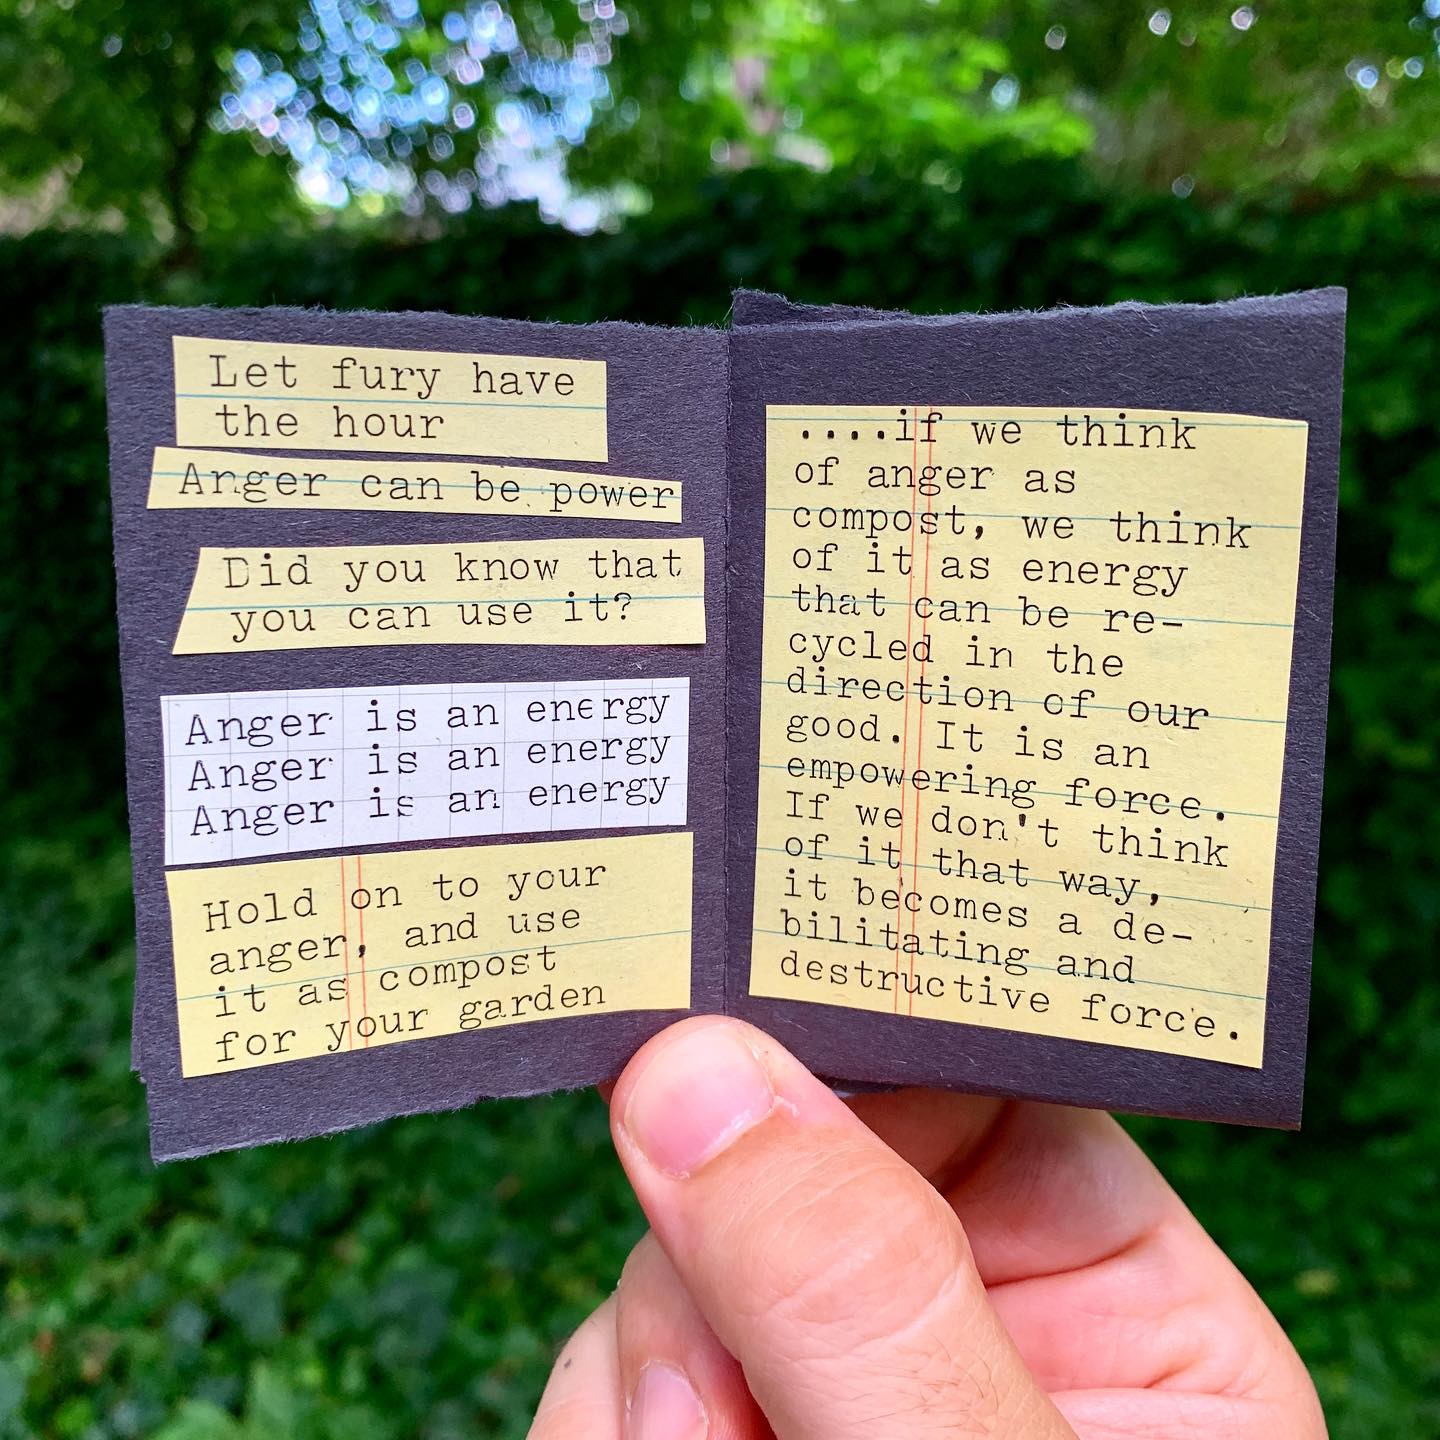 Let fury have
the hour
Anger can be power
Did you know that
you can use it?
Anger is an energy
Anger is an energy
Anger is an energy
Hold on to your
anger, and use
it as compost
for your garden
....if we think
of anger as
compost, we think
of it as energy
that can be re-
cycled in the
direction of our
good. It is an
empowering force.
If we don't think
of it that way,
it becomes a de-
bilitating and
destructive force.